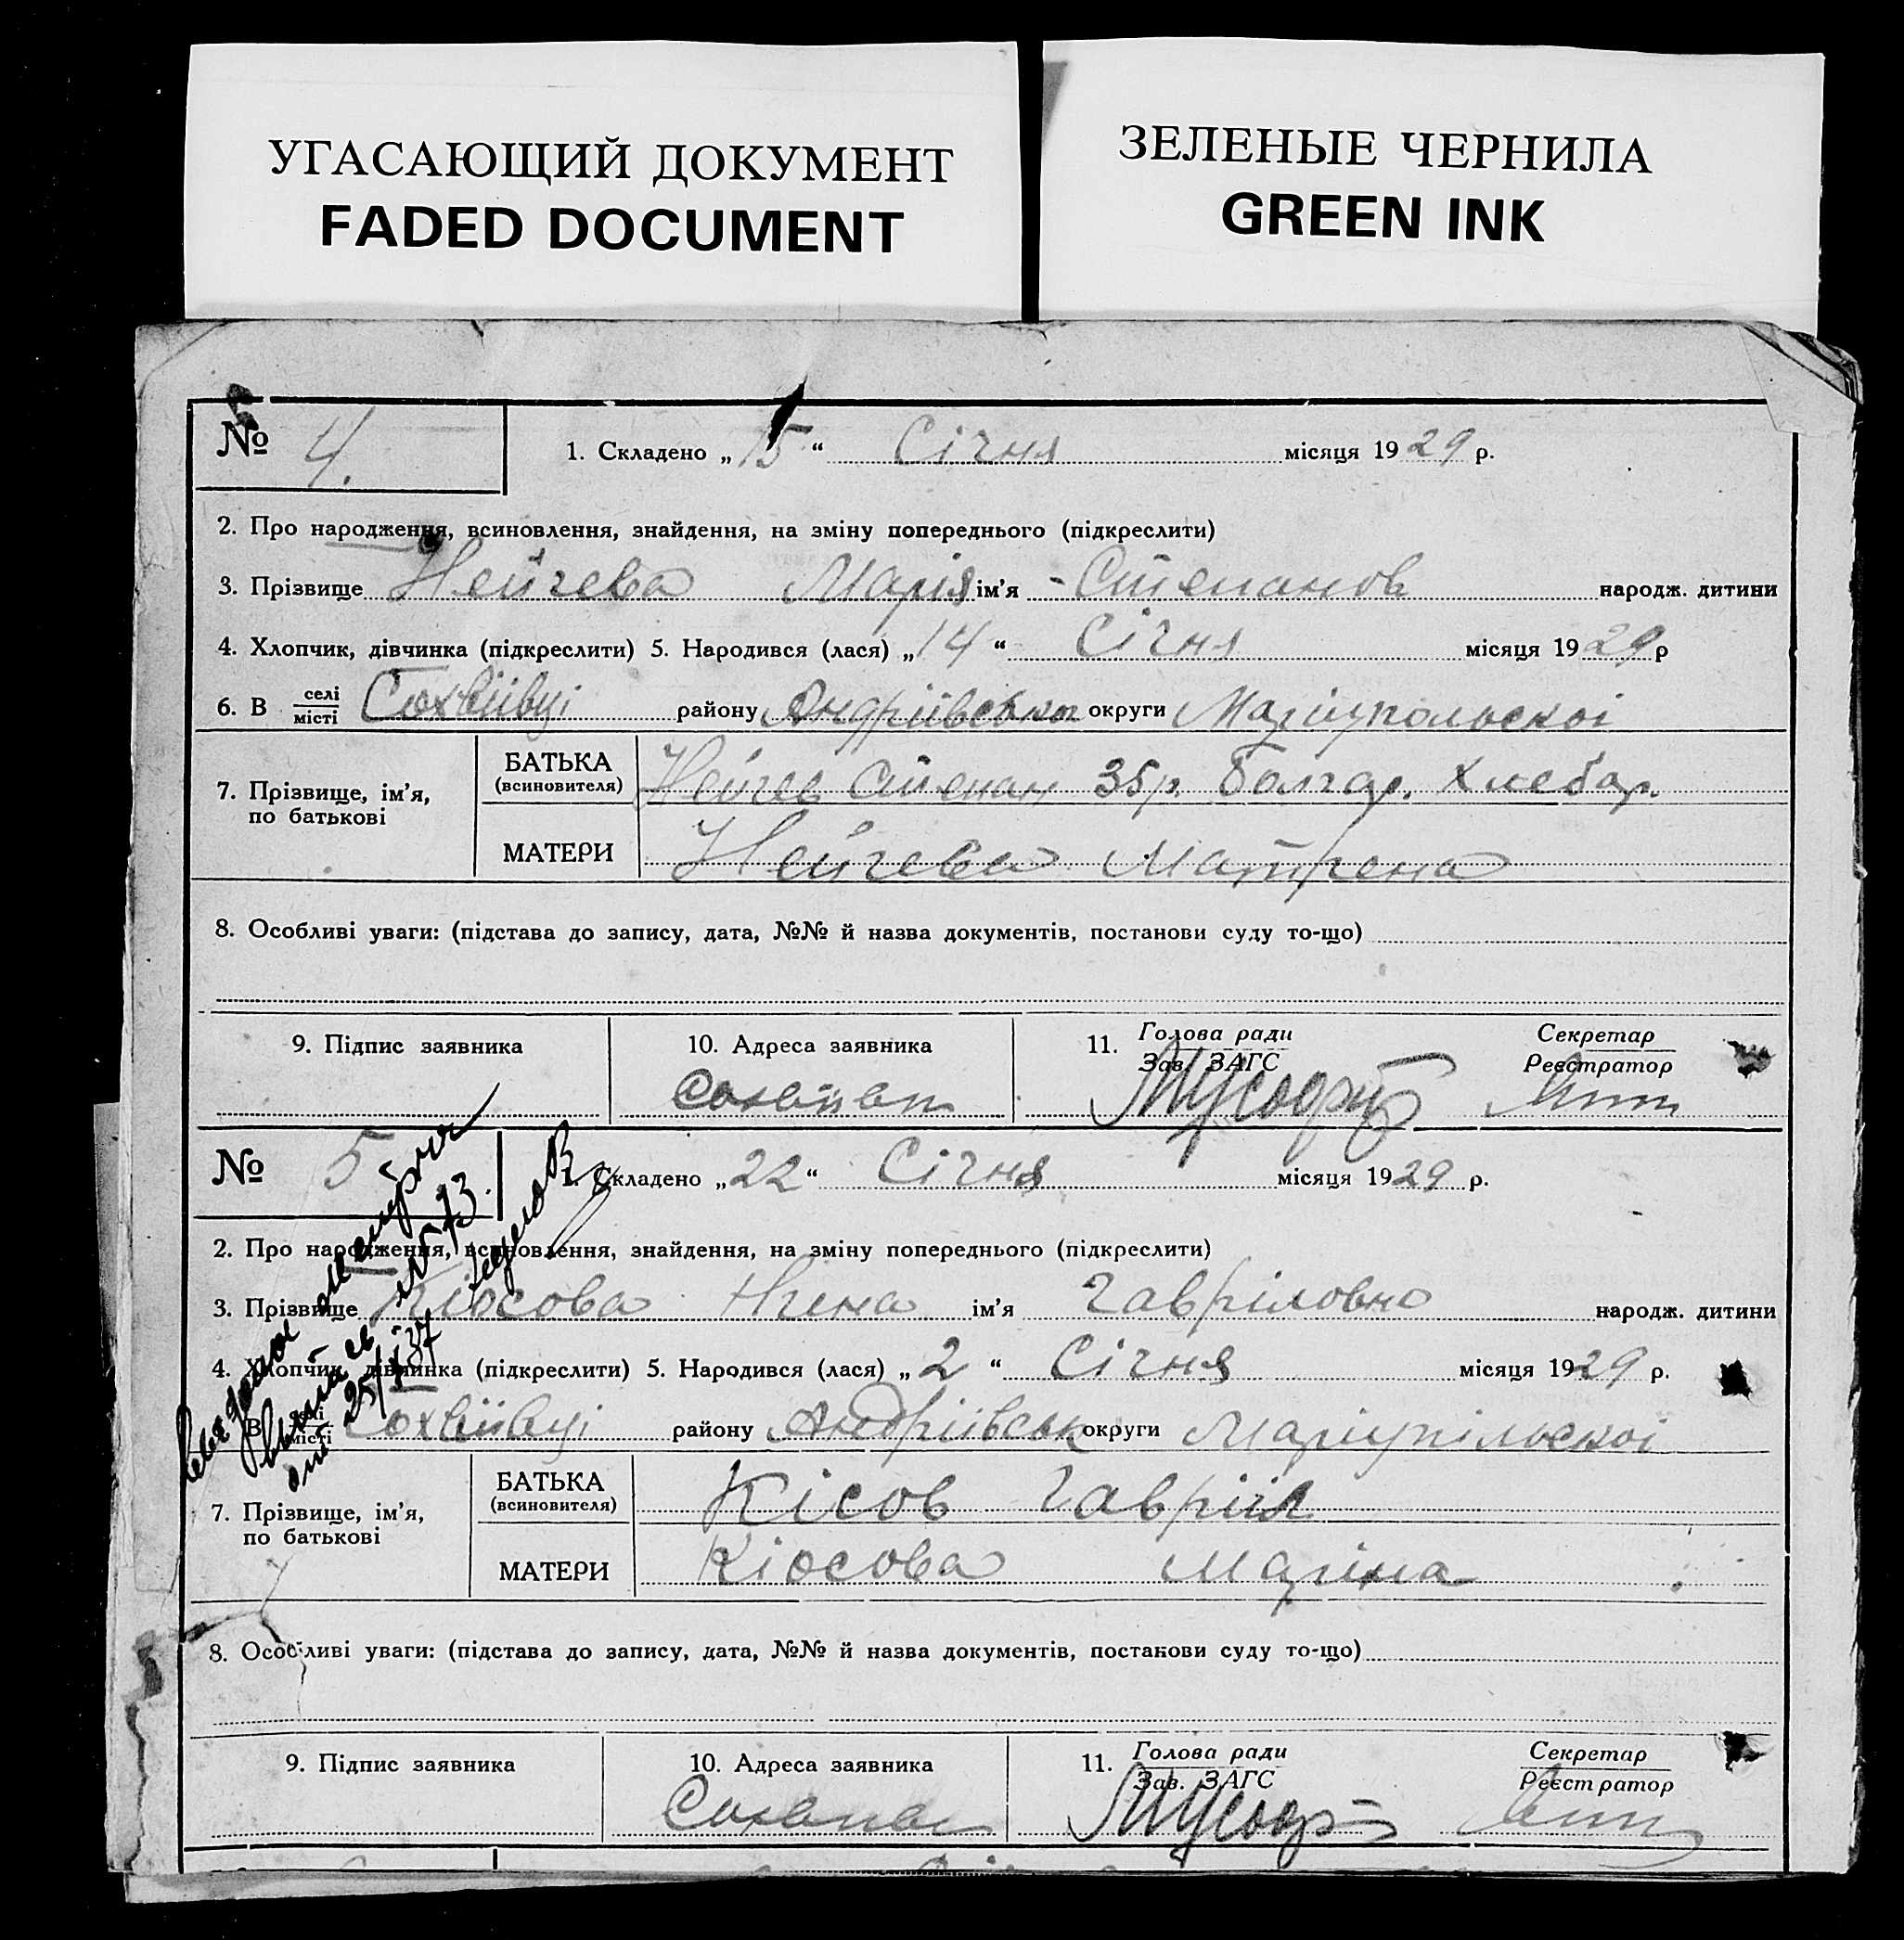 УГАСАЮЩИЙ ДОКУМЕНТ
FADED DOCUMENT
ЗЕЛЕНЫЕ ЧЕРНИЛА
GREEN INK
№ 4. 1. Складено „15“ Січня місяця 1929 р.
2. Про народження, всиновлення, знайдення, на зміну попереднього (підкреслити)
3. Прізвище Нейчева Марія ім’я - Степанов народж. дитини
4. Хлопчик, дівчинка (підкреслити) 5. Народився (лася) „14“ Січня місяця 1929 р
6. В селі місті району Андріївсько округи Маріупольскоі
7. Прізвище, ім’я, по батькові
БАТЬКА (всиновителя) Нейчев Степан 35 р. Болгар. Хлебор.
МАТЕРИ Нейчева Матрена
8. Особливі уваги: (підстава до запису, дата, №№ й назва документів, постанови суду то-що)
9. Підпис заявника 10. Адреса заявника 11. Голова ради Зав. ЗАГС Секретар Реєстратор
№ 5 1. Складено „22“ Січня місяця 1929 р.
2. Про народження, всиновлення, знайдення, на зміну попереднього (підкреслити)
3. Прізвище Кіосова ім’я Гавріловна народж. дитини
4. Хлопчик, дівчинка (підкреслити) 5. Народився (лася) „2“ Січня місяця 1929 р.
6. В селі місті району Андріївськ округи Маріупільскоі
7. Прізвище, ім’я, по батькові
БАТЬКА (всиновителя) Кісов Гавріил
МАТЕРИ Кіосова Маріна
8. Особливі уваги: (підстава до запису, дата, №№ й назва документів, постанови суду то-що)
9. Підпис заявника 10. Адреса заявника 11. Голова ради Зав. ЗАГС Секретар Реєстратор